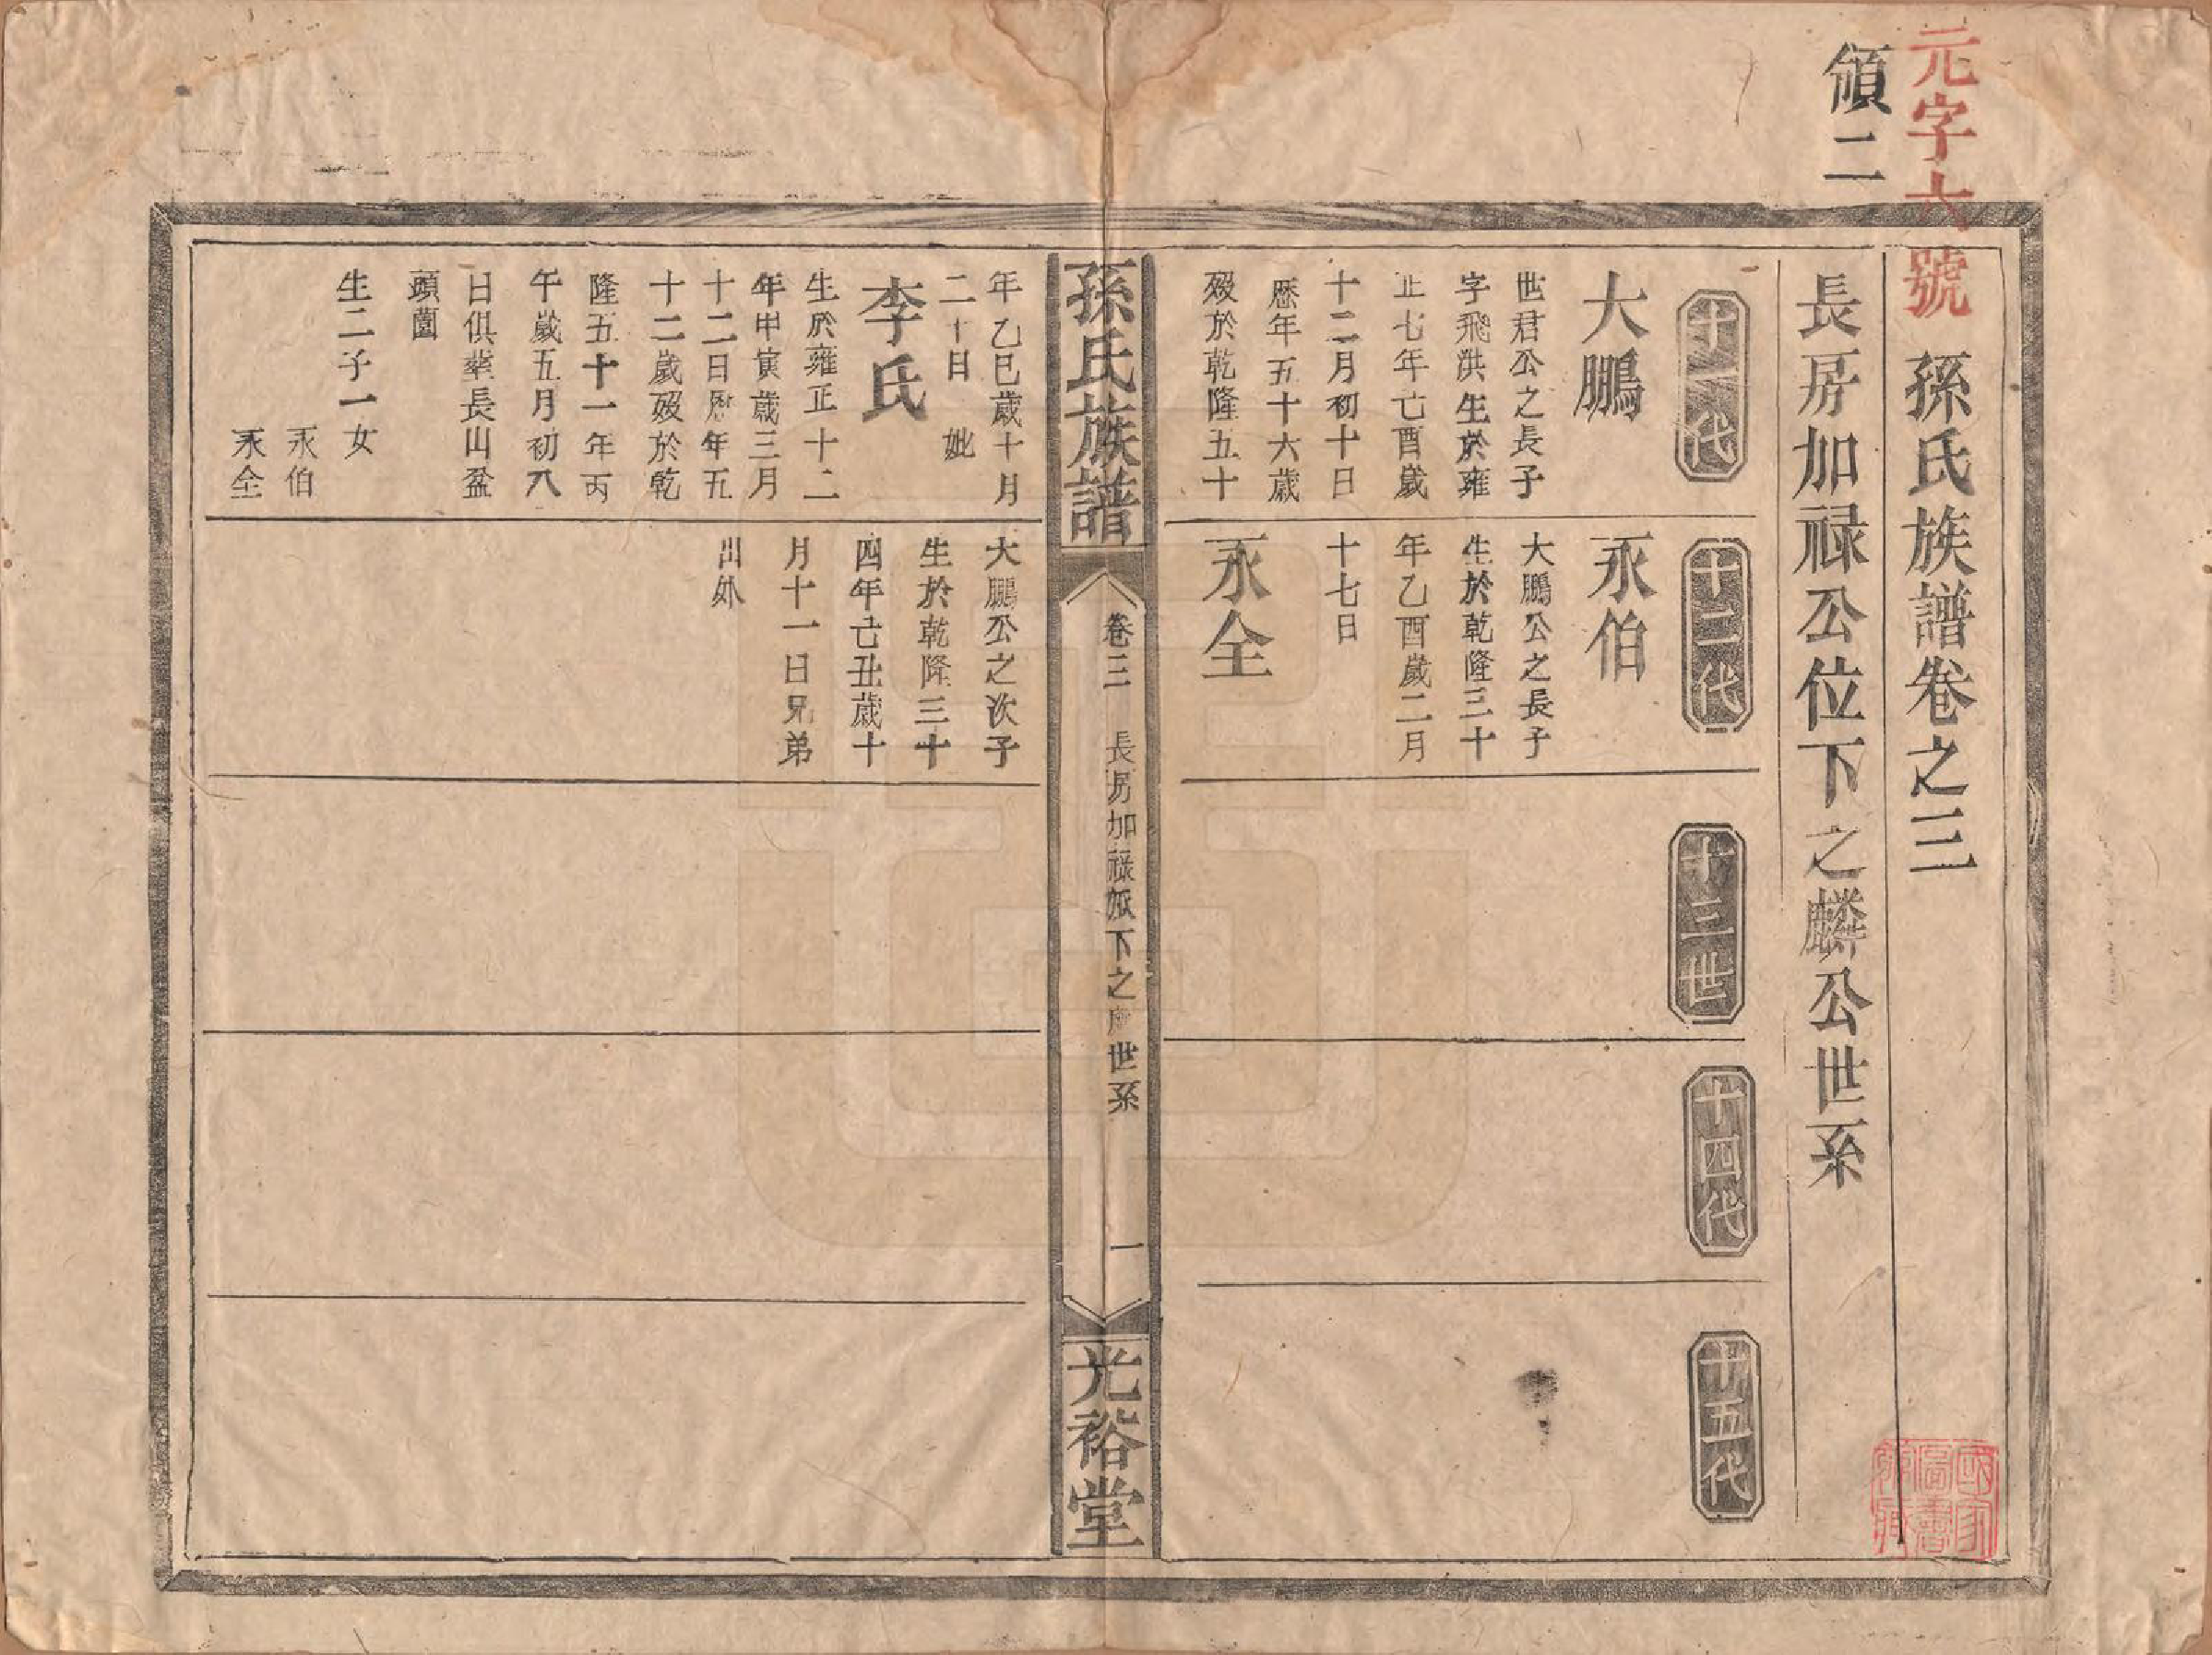 元字六號
頒二
孫氏族譜卷之三
長房加禄公位下之麟公世系
十一代
大鵬
世君公之長子
字飛洪生於雍
正七年亡酉歲
十二月初十日
歷年五十六歲
歿於乾隆五十
十二代
永伯
大鵬公之長子
生於乾隆三十
年乙酉歲二月
十七日
永全
十三世
十四代
十五代
孫氏族譜
卷三
長房加禄派下之麟世系
一
光裕堂
年乙巳歲十月
二十日 妣
李氏
生於雍正十二
年甲寅歲三月
十二日歷年五
十二歲歿於乾
隆五十一年丙
午歲五月初八
日俱塟長山盆
頭薗
生二子一女
永伯
永全
大鵬公之次子
生於乾隆三十
四年亡丑歲十
月十一日兄弟
出外
國家
圖書
館藏